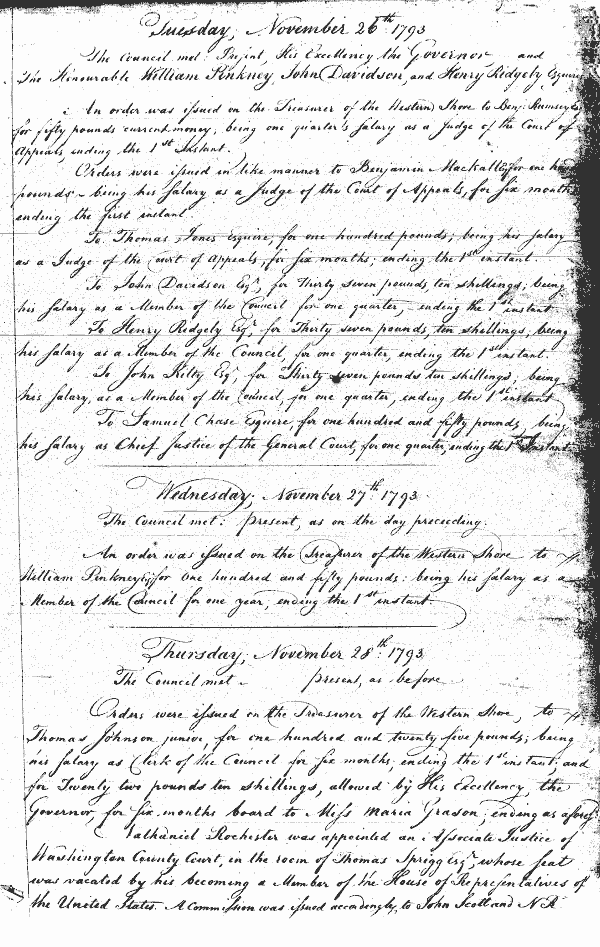 Tuesday, November 26th 1793
The Council met: Present, His Excellency the Governor and
The Honourable William Pinkney, John Davidson, and Henry Ridgely Esquires
An order was issued on the Treasurer of the Western Shore to Benj: Rumsey
for fifty pounds current money, being one quarter's Salary as a Judge of the Court of
Appeals, ending the 1st Instant.
Orders were issued in like manner to Benjamin Mackall for one
pounds being his Salary as a Judge of the Court of Appeals, for six months
ending the first instant.
To Thomas Jones Esquire, for one hundred pounds; being his Salary
as a Judge of the Court of Appeals, for six months; ending the 1st instant.
To John Davidson Esqr, for Thirty seven pounds, ten shillings; being
his Salary as a Member of the Council for one quarter, ending the 1st instant
To Henry Ridgely Esqr for Thirty seven pounds, ten shillings, being
his Salary as a Member of the Council, for one quarter, ending the 1st instant.
To John Kilty Esqr, for Thirty seven pounds ten shillings; being
his Salary, as a Member of the Council, for one quarter, ending the 1st instant
To Samuel Chase Esquire, for one hundred and fifty pounds, being
his Salary as Chief Justice of the General Court, for one quarter, ending the 1st Instant
Wednesday, November 27th 1793.
The Council met: present, as on the day preceeding.
An order was issued on the Treasurer of the Western Shore to
William Pinkney for one hundred and fifty pounds: being his Salary as a
Member of the Council for one year, ending the 1st instant
Thursday, November 28th 1793
The Council met. present, as before
Orders were issued on the Treasurer of the Western Shore, to
Thomas Johnson junior, for one hundred and twenty five pounds; being
his Salary as Clerk of the Council for six months, ending the 1st instant; and
for Twenty two pounds ten shillings, allowed by His Excellency, the
Governor, for six months board to Miss Maria Grason, ending as afores'd
Nathaniel Rochester was appointed an Associate Justice of
Washington County Court, in the room of Thomas Sprigg Esqr, whose seat
was vacated by his becoming a Member of the House of Representatives of
the United States. A Commission was issued accordingly to John Scotland N.R.